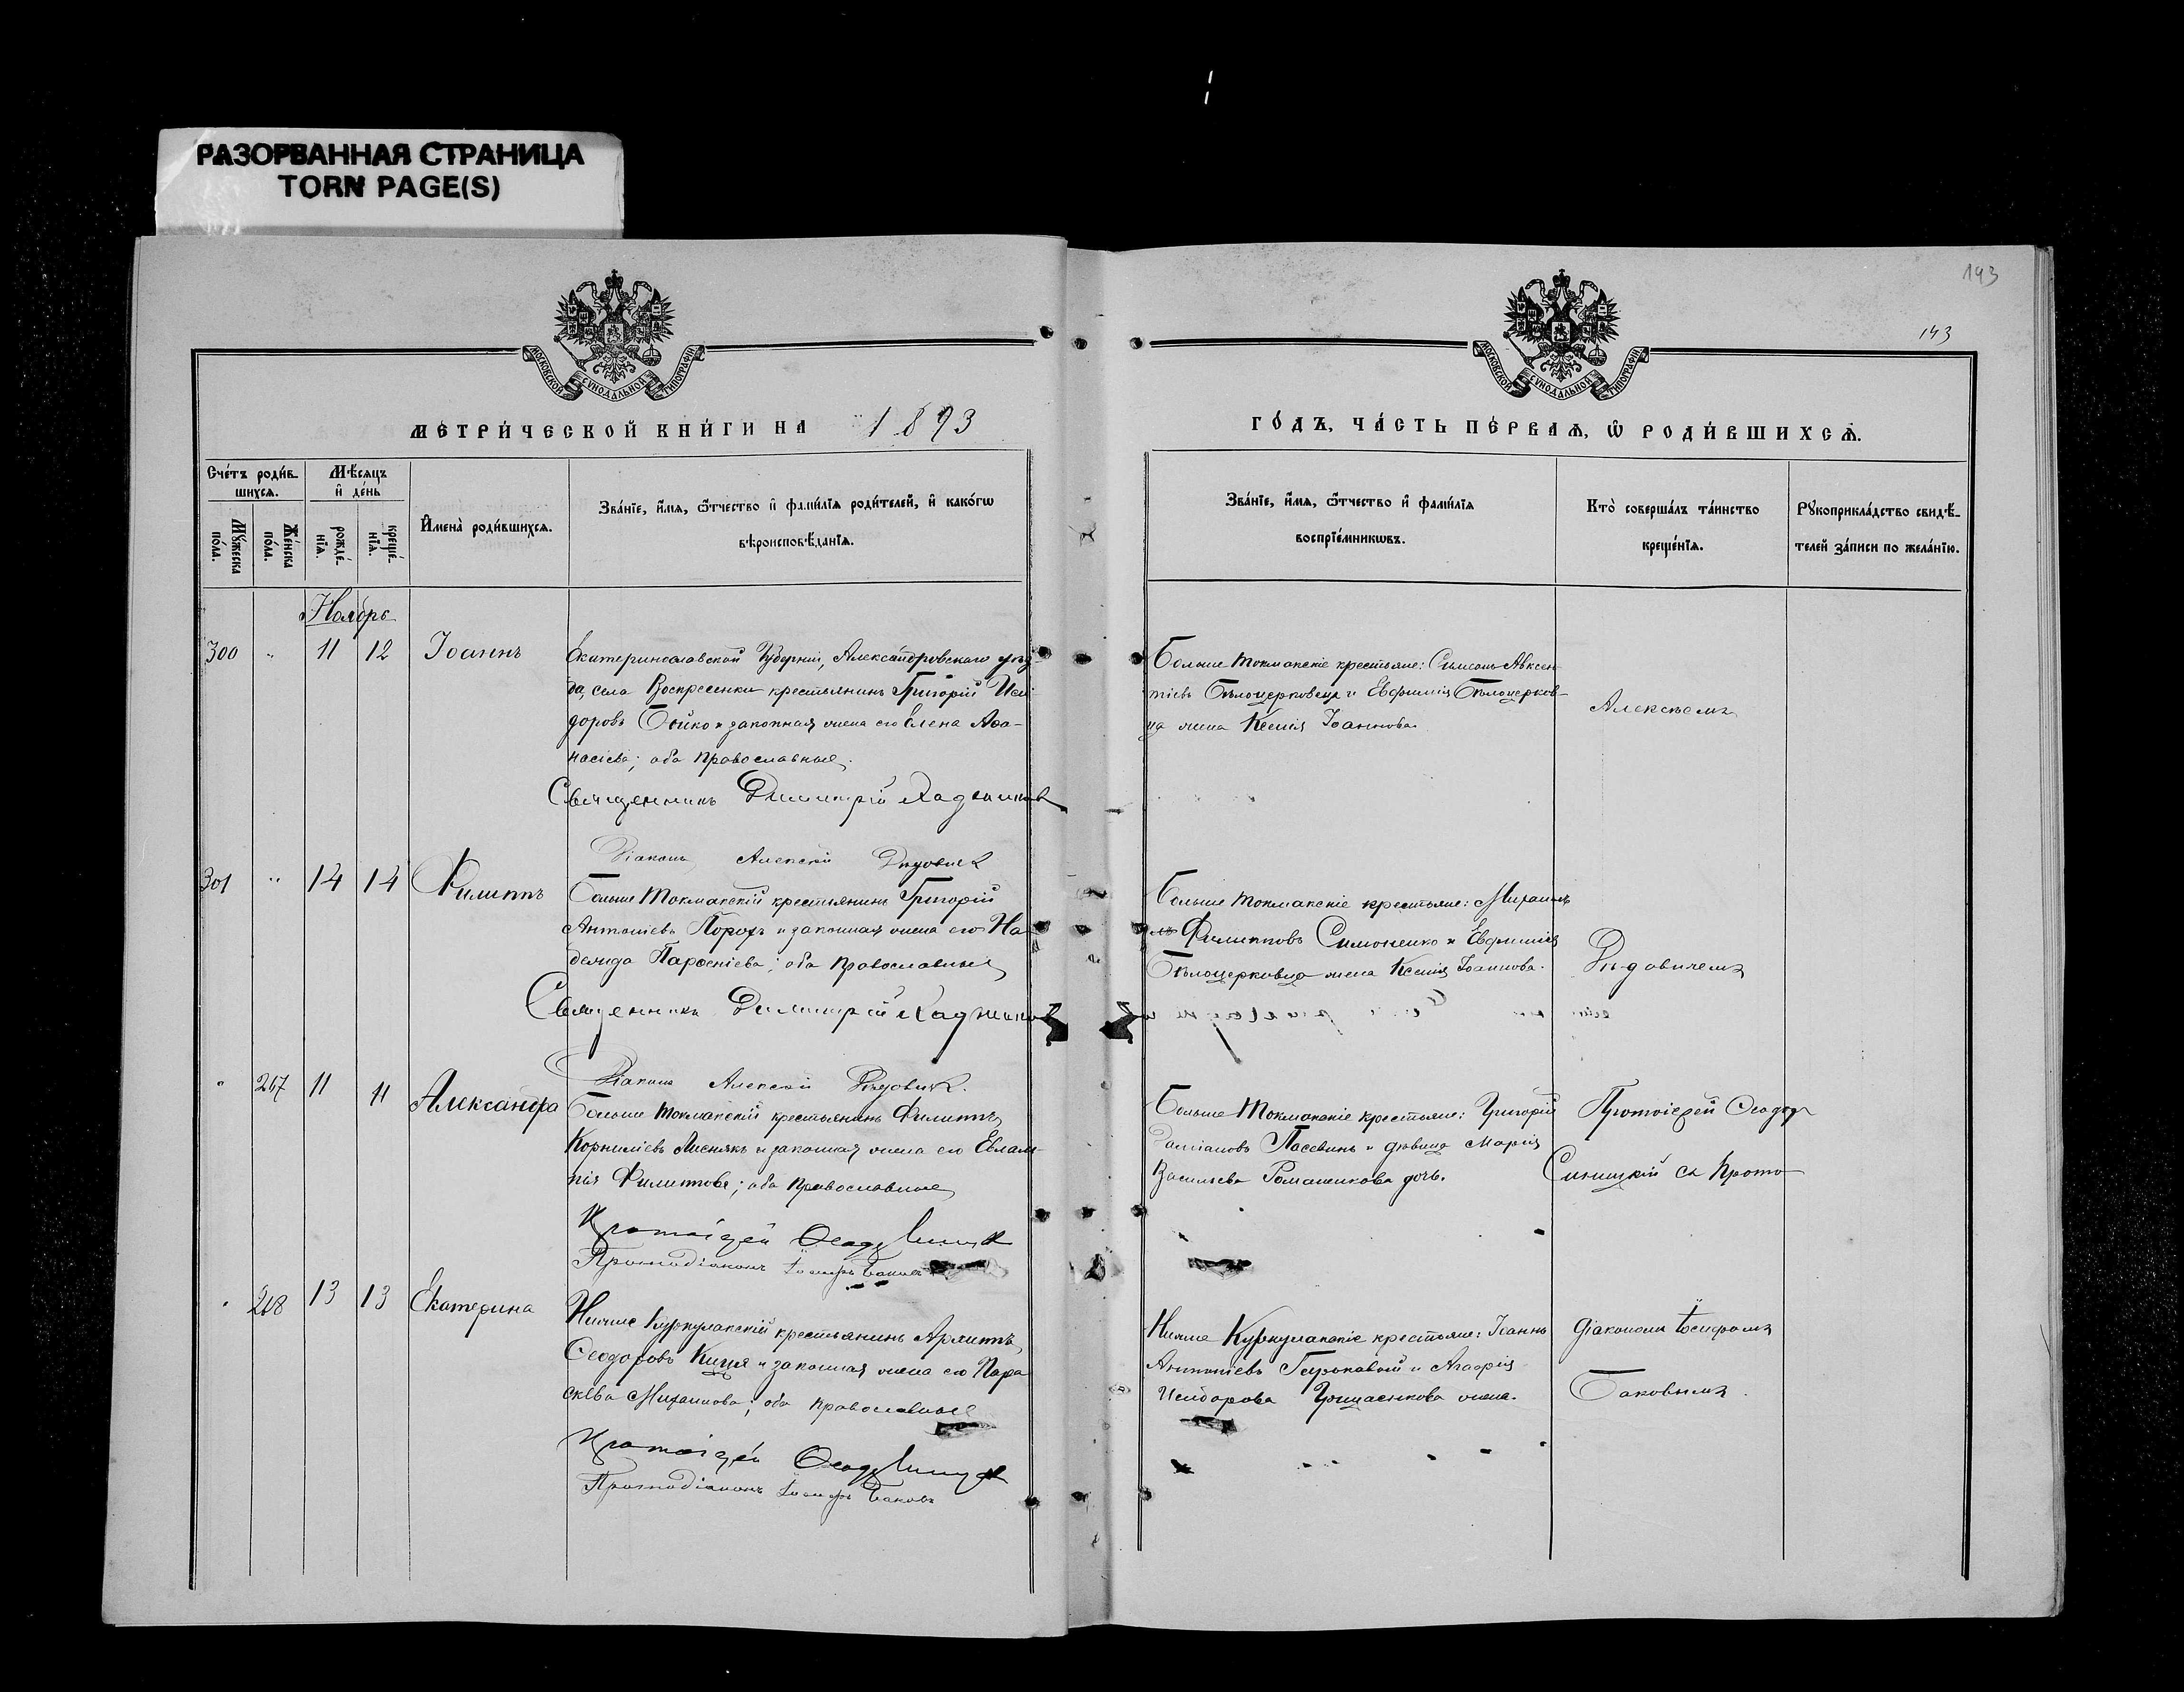 РАЗОРВАННАЯ СТРАНИЦА
TORN PAGE(S)
193
143
МОСКОВСКОЙ СѴНОДАЛЬНОЙ ТИПОГРАФІИ
МОСКОВСКОЙ СѴНОДАЛЬНОЙ ТИПОГРАФІИ
МЕТРИ́ЧЕСКОЙ КНИ́ГИ НА 1893
ГО́ДЪ, ЧА́СТЬ ПЕ́РВАѦ, Ѡ҆ РОДИ́ВШИХСѦ.
Сче́тъ роди́в-
шихсѧ.
Мѣ́сѧцъ
и҆ де́нь
Мꙋ́жеска
по́ла.
Же́нска
по́ла.
рожде́-
нїѧ.
креще́-
нїѧ.
И҆мена̀ роди́вшихсѧ.
Зва́нїе, и҆́мѧ, ѻ҆́тчество и҆ фами́лїѧ роди́телей, и҆ како́гѡ
вѣроисповѣ́данїѧ.
Зва́нїе, и҆́мѧ, ѻ҆́тчество и҆ фами́лїѧ
воспрїе́мникѡвъ.
Кто̀ соверша́лъ та́инство
креще́нїѧ.
Рꙋкоприкла́дство свидѣ́-
телей за́писи по жела́нїю.
Ноябрь
300 " 11 12 Іоаннъ
Екатеринославской Губерніи, Александровскаго уѣз-
да, села Воскресенки крестьянинъ Григорій Иси-
доровъ Бойко и законная жена его Елена Аѳа-
насіева; оба православные.
Священникъ Димитрій Хаджинов
Діаконъ Алексій Дѣдович
Больше Токмакскіе крестьяне: Симеонъ Авксен-
тіевъ Бѣлоцерковецъ и Евфимія Бѣлоцерков-
ца жена Ксенія Іоаннова.
Алексѣемъ
301 " 14 14 Филиппъ
Больше Токмакскій крестьянинъ Григорій
Антоніевъ Порохъ и законная жена его На-
дежда Парѳеніева; оба православные
Священникъ Димитрій Хаджинов
Діаконъ Алексій Дѣдович
Больше Токмакскіе крестьяне: Михаилъ
Филипповъ Симоненко и Евфимія
Бѣлоцерковца жена Ксенія Іоаннова.
Дѣдовичемъ
" 247 11 11 Александра
Больше Токмакскій крестьянинъ Филиппъ
Корниліевъ Лиснякъ и законная жена его Евлам-
пія Филиппова; оба православные
Протоіерей Ѳеодор Синицкій
Протодіаконъ Іосифъ Баковъ
Больше Токмакскіе крестьяне: Григорій
Даміановъ Пасевинъ и дѣвица Марія
Васильева Романенкова дочь.
Протоіерей Ѳеодоръ
Синицкій съ Прото
" 248 13 13 Екатерина
Нижне Куркулакскій крестьянинъ Архиппъ
Ѳеодоровъ Кицея и законная жена его Пара
скева Михаилова; оба православные
Протоіерей Ѳеодор Синицкій
Протодіаконъ Іосифъ Баковъ
Нижне Куркулакскіе крестьяне: Іоаннъ
Антоніевъ Гирькавый и Агафія
Исидорова Грицаенкова жена.
діакономъ Іосифомъ
Баковымъ.